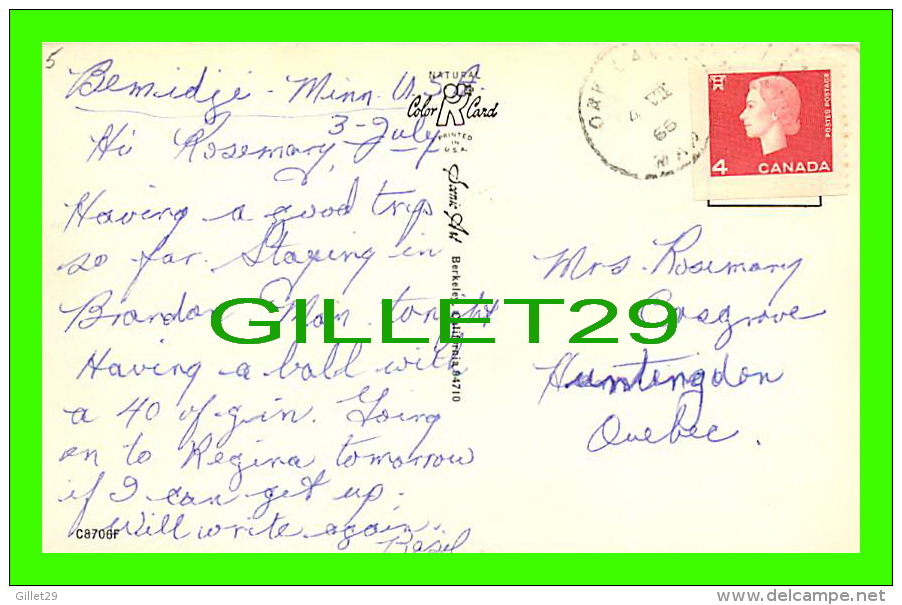 5
Bemidji - Minn. U.S.A.
3-July
Hi Rosemary,
Having a good trip
so far. Staying in
Brandon Man. tonight
Having a ball with
a 40 of gin. Going
on to Regina tomorrow
if I can get up.
Will write again.
Basil
C8706F
NATURAL
Color Card
PRINTED
IN
U.S.A.
Scenic Art Berkeley, California 94710
4 VII
66
MAN
POSTES POSTAGE
4 CANADA
Mrs. Rosemary
Cosgrove
Huntingdon
Quebec.
GILLET29
Gillet29
www.delcampe.net